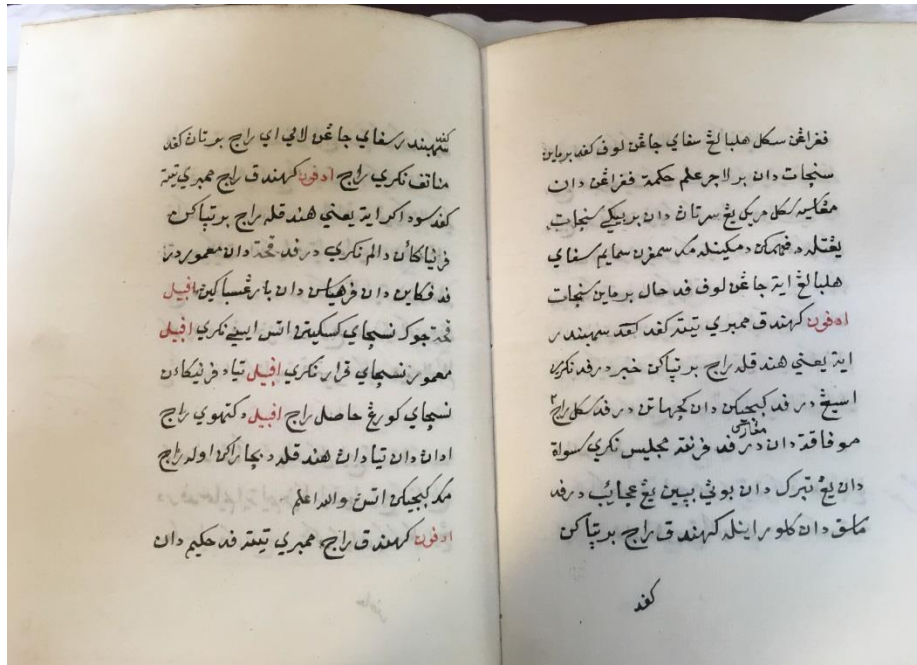 ڤڠراڠن سكل هلبالڠ سڤاي جاڠن لوڤ كڤد برماين
سنجات دان برلاجر علم حكمة ڤڠراڠن دان
سكل مريكيڠ سرتاڽ دان بربيكي سنجات
يڠتله دڤهمكن دمكينله مك سمڤرن سمايم سڤاي
هلبالڠ ايت جاڠن لوڤ ڤد حال برماين سنجات
ادڤون كهندق ممبري تيته كڤد سهبندر
ايت يعني هندقله راج برتڽاكن خبر درڤد نكري
اسيڠ درڤد كبجيكن دان كجهاتن درڤد سكل راج٢
موڤاقة دان درڤد ڤرنته مجليس نكري سواة
دان يڠ تبرك دان بوڽي بڽين يڠ عجايب درڤد
ماسق دان كلور اينله كهندق راج برتڽاكن
كڤد
سهبندر سڤاي جاڠن لالي اي راج برتاڽ كڤد
نكري راج ادڤون كهندق راج ممبري تيته
كڤد سوداكر ايت يعني هندقله راج برتڽاكن
ڤرنياكاءن دالم نكري درڤد قحة دان معمور دان
ڤد ڤكاين دان ڤرهياسن دان اڤبيل
قحة جوك نسچاي كسكيتن اتس ايسي نكري اڤبيل
معمور نسچاي قرار نكري اڤبيل تياد ڤرنيكاءن
نسچاي كورڠ حاصل راج اڤبيل دكتهوي راج
ادان دان تيادان هندقله دبچاراكن اوله راج
مك كبجيكن اتسڽ والله اعلم
ادڤون كهندق راج ممبري تيته ڤد حكيم دان